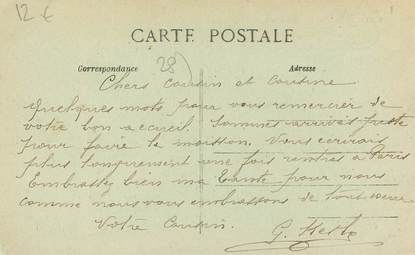 12 €
CARTE POSTALE
Correspondance
28
Adresse
Chers Cousin et Cousine
Quelques mots pour vous remercier de
votre bon accueil. Sommes arrivés juste
pour faire la moisson. Vous écrirais
plus longuement une fois rentrés à Paris
Embrassez bien ma Tante pour nous
comme nous vous embrassons de tout coeur
Votre Cousin.
G.